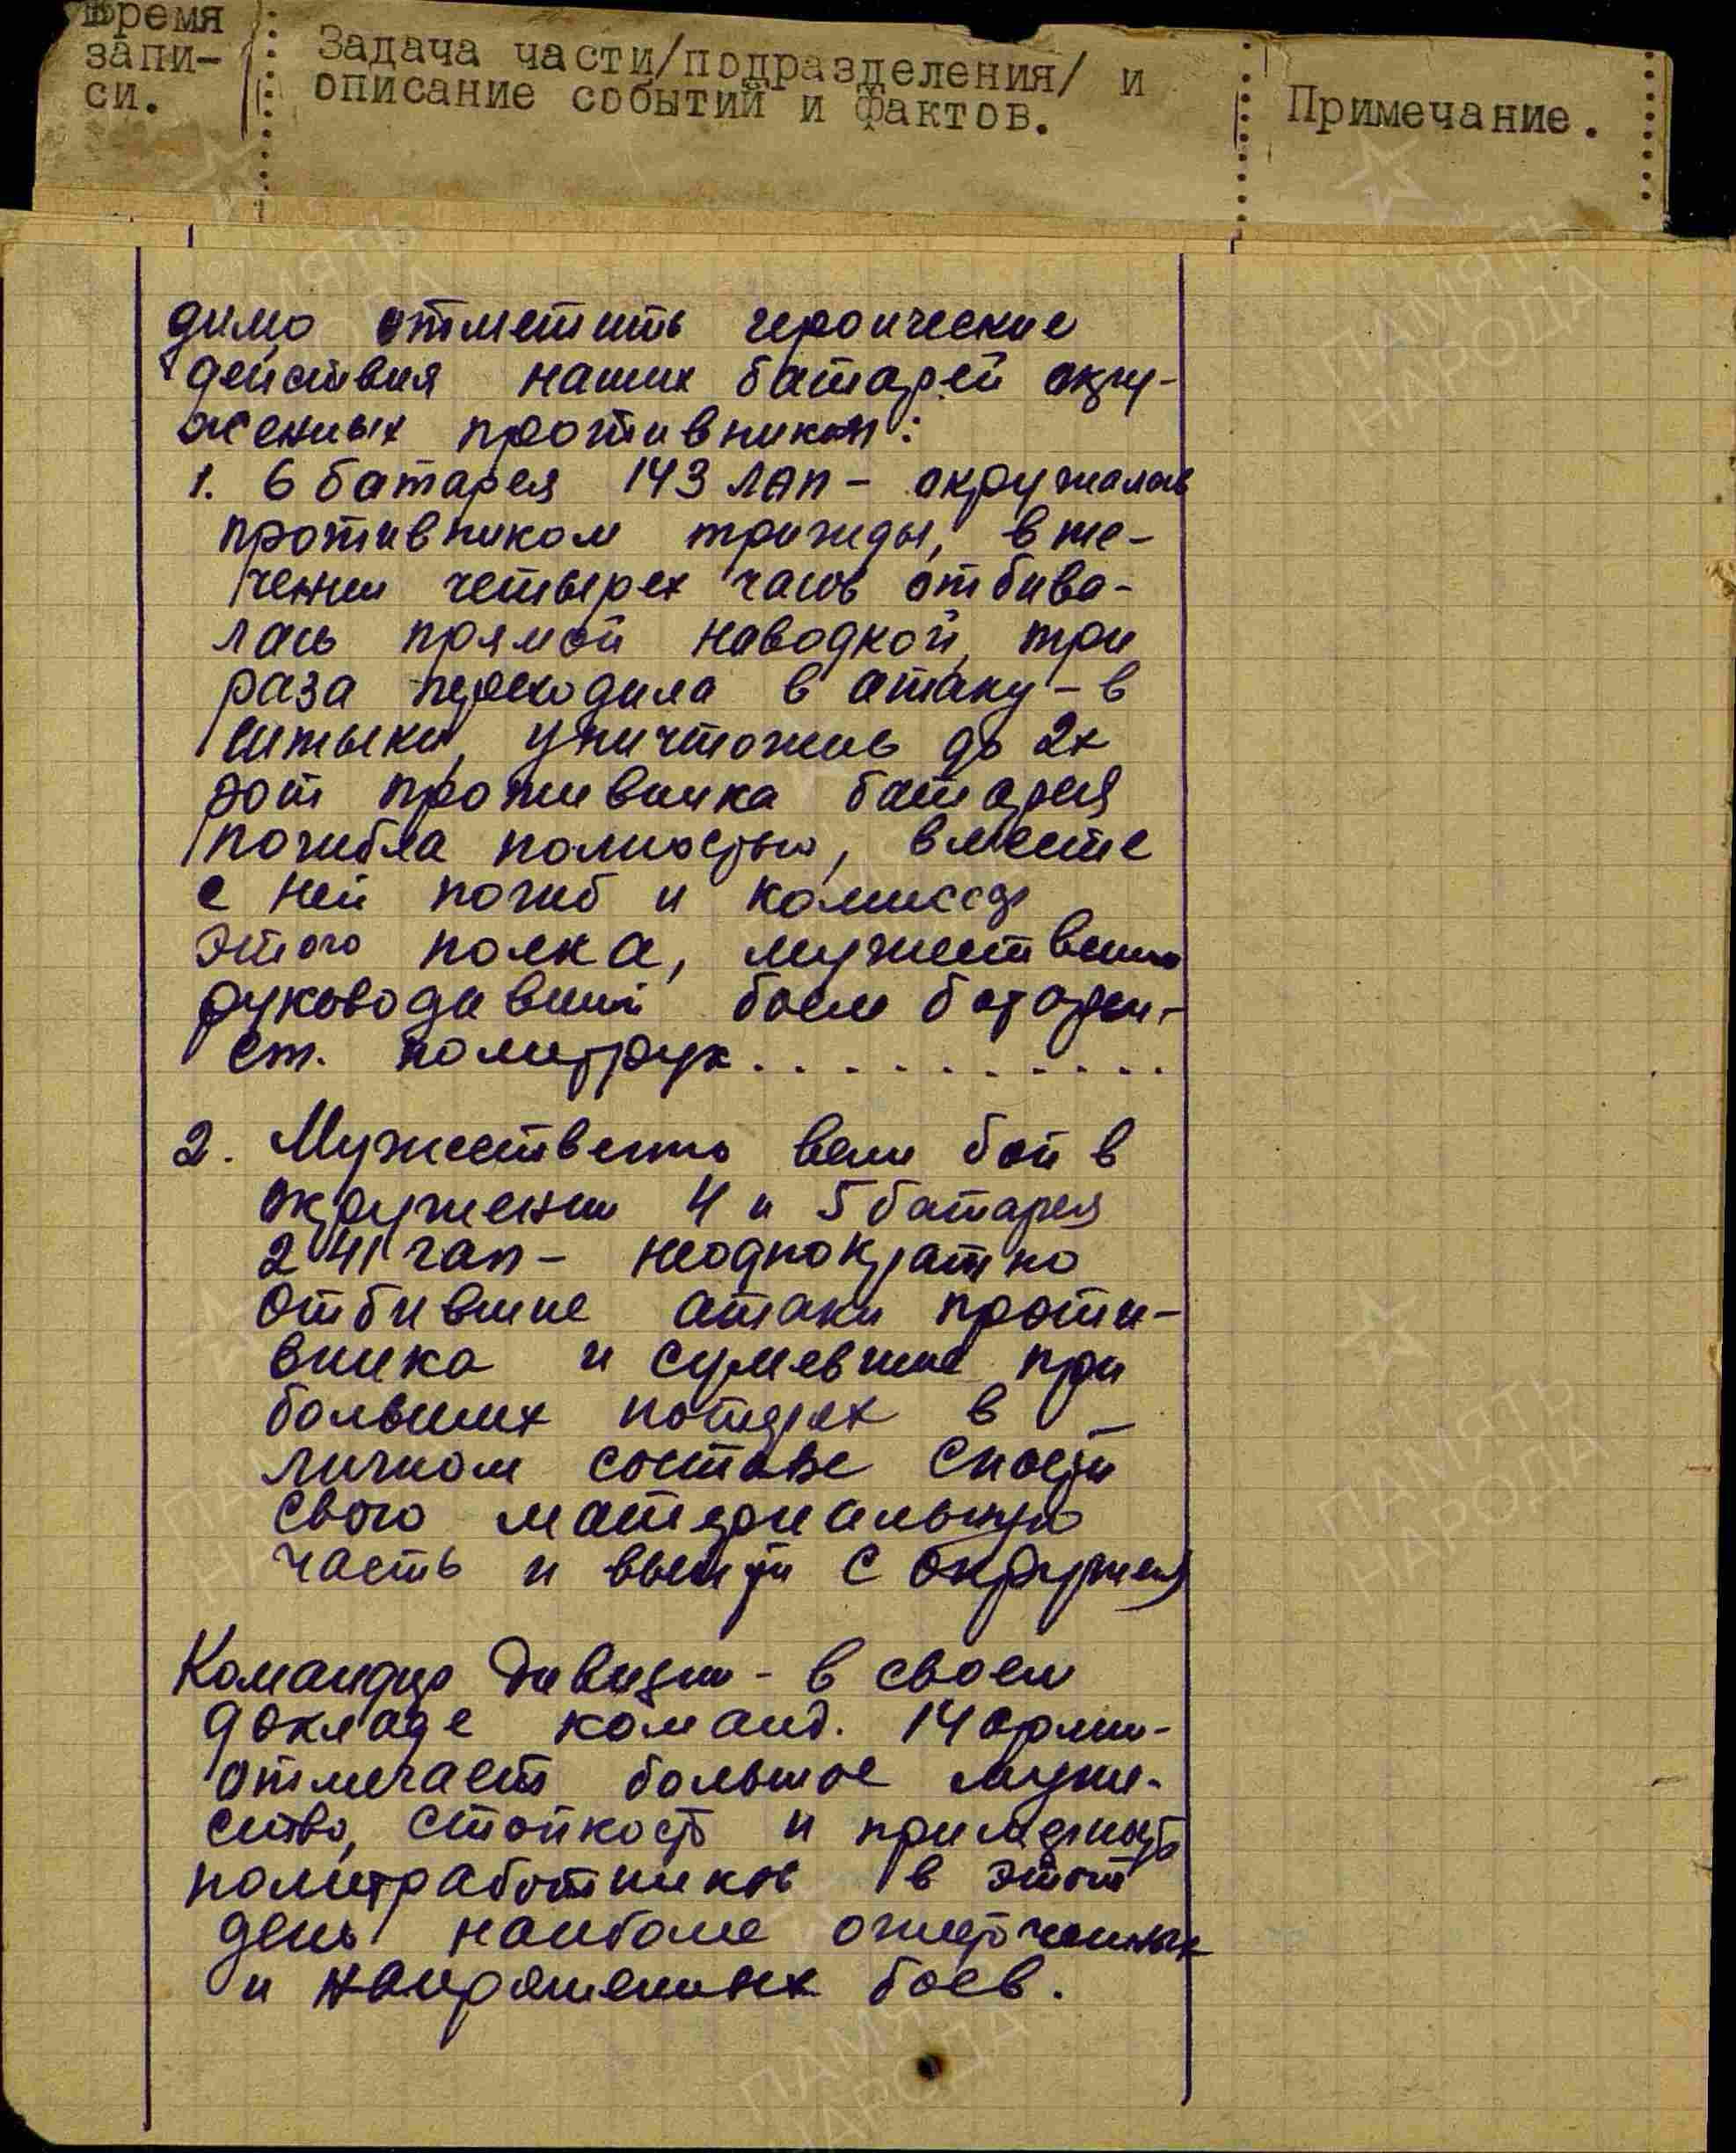 Время
запи-
си.
Задача части/подразделения/ и
описание событий и фактов.
Примечание.
димо отметить героические
действия наших батарей окру-
женных противником:
1. 6 батарея 143 лап - окружалась
противником трижды, в те-
чении четырех часов отбива-
лась прямой наводкой, три
раза переходила в атаку - в
штыки, уничтожив до 2х
рот противника батарея
погибла полностью, вместе
с ней погиб и комиссар
этого полка, мужественно
руководивший боем батареи -
ст. политрук...........
2. Мужественно вели бой в
окружении 4 и 5 батарея
241 гап - неоднократно
отбившие атаки проти-
вника и сумевшие при
больших потерях в
личном составе спасти
свою материальную
часть и выйти с окружения
Командир дивизии - в своем
докладе команд. 14 армии -
отмечает большое муже-
ство, стойкость и примерность
политработников в этот
день наиболее ожесточенных
и напряженных боев.
ПАМЯТЬ
НАРОДА